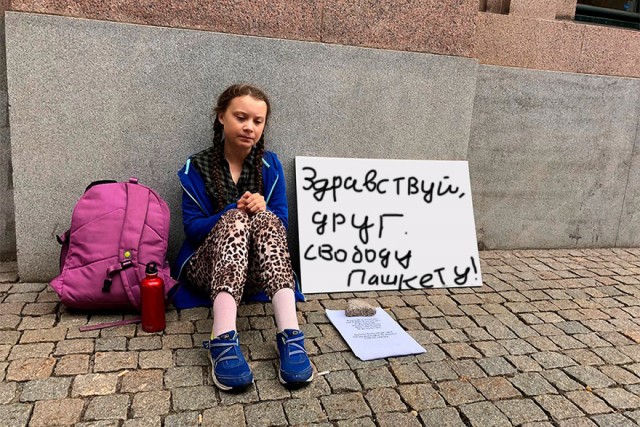 Здравствуй,
друг.
свободу
пашкету!